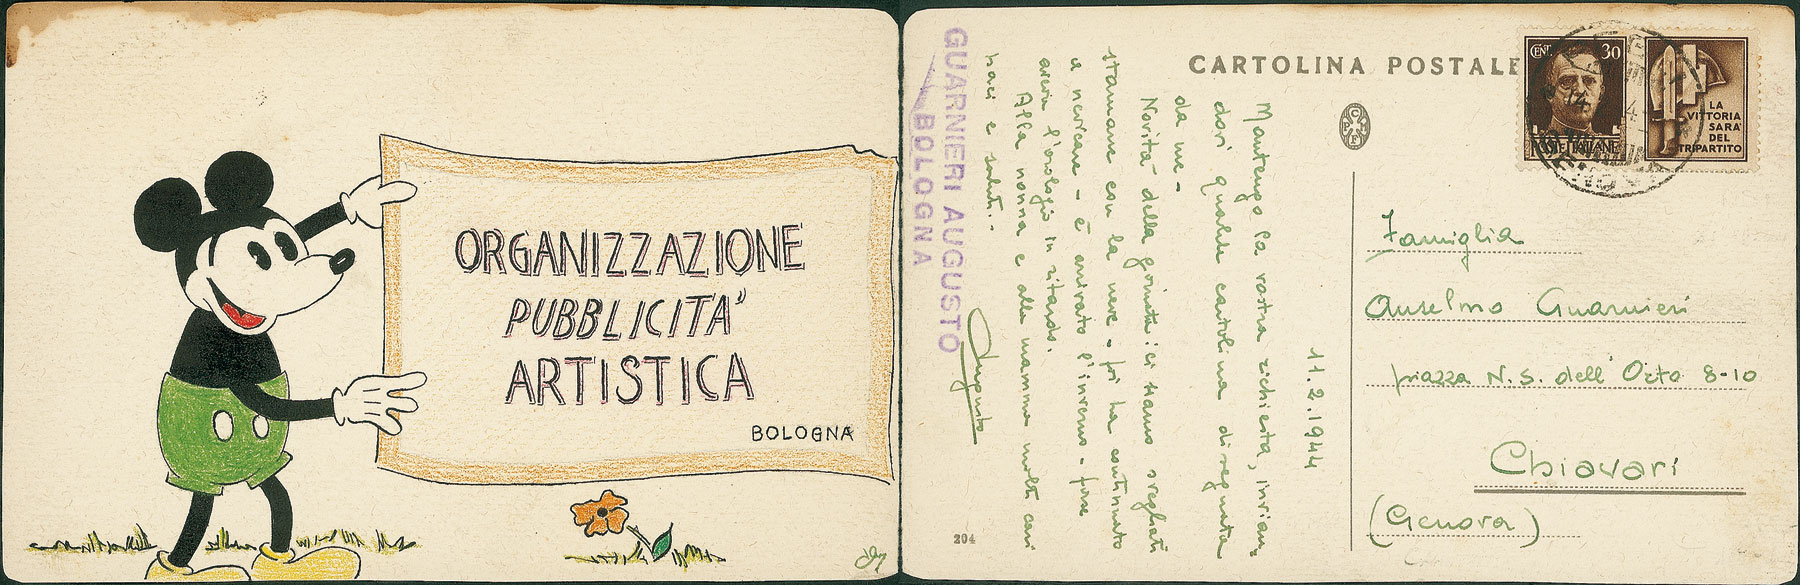 ORGANIZZAZIONE
PUBBLICITA'
ARTISTICA
BOLOGNA
GUARNIERI AUGUSTO
BOLOGNA
CARTOLINA POSTALE
CENT 30
POSTE ITALIANE
LA
VITTORIA
SARÀ
DEL
TRIPARTITO
11.2.1944
Mantengo la vostra richiesta, invian-
dovi qualche cartolina disegnata
da me -
Novità della giornata: ci siamo svegliati
stamane con la neve - poi ha continuato
a nevicare - è arrivato l'inverno - forse
aveva l'orologio in ritardo.
Alla nonna e alla mamma molti cari
baci e saluti -
Augusto
Famiglia
Anselmo Guarnieri
piazza N. S. dell' Orto 8-10
Chiavari
(Genova)
204